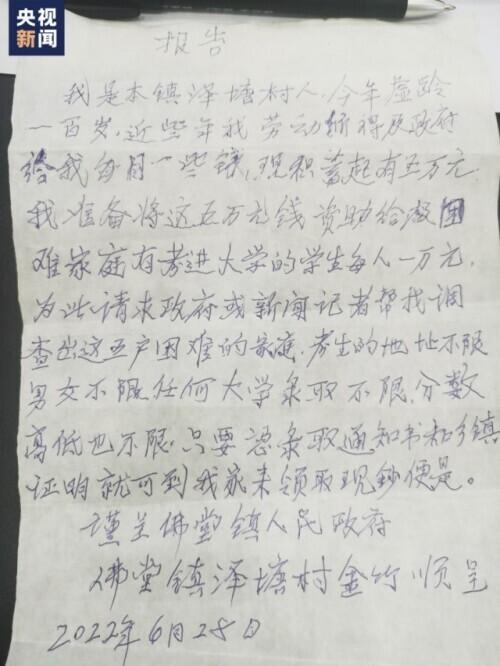 央视
新闻
报告
我是本镇泽塘村人,今年虚龄
一百岁,近些年我劳动所得及政府
给我每月一些钱,现积蓄起有五万元.
我准备将这五万元钱资助给被困
难家庭有考进大学的学生每人一万元.
为此请求政府或新闻记者帮我调
查出这五户困难的家庭.考生的地址不限
男女不限任何大学录取不限.分数
高低也不限.只要恐录取通知书和乡镇
证明就可到我家来领取现钞便是。
谨呈佛堂镇人民政府
佛堂镇泽塘村金竹顺呈
2022年6月28日